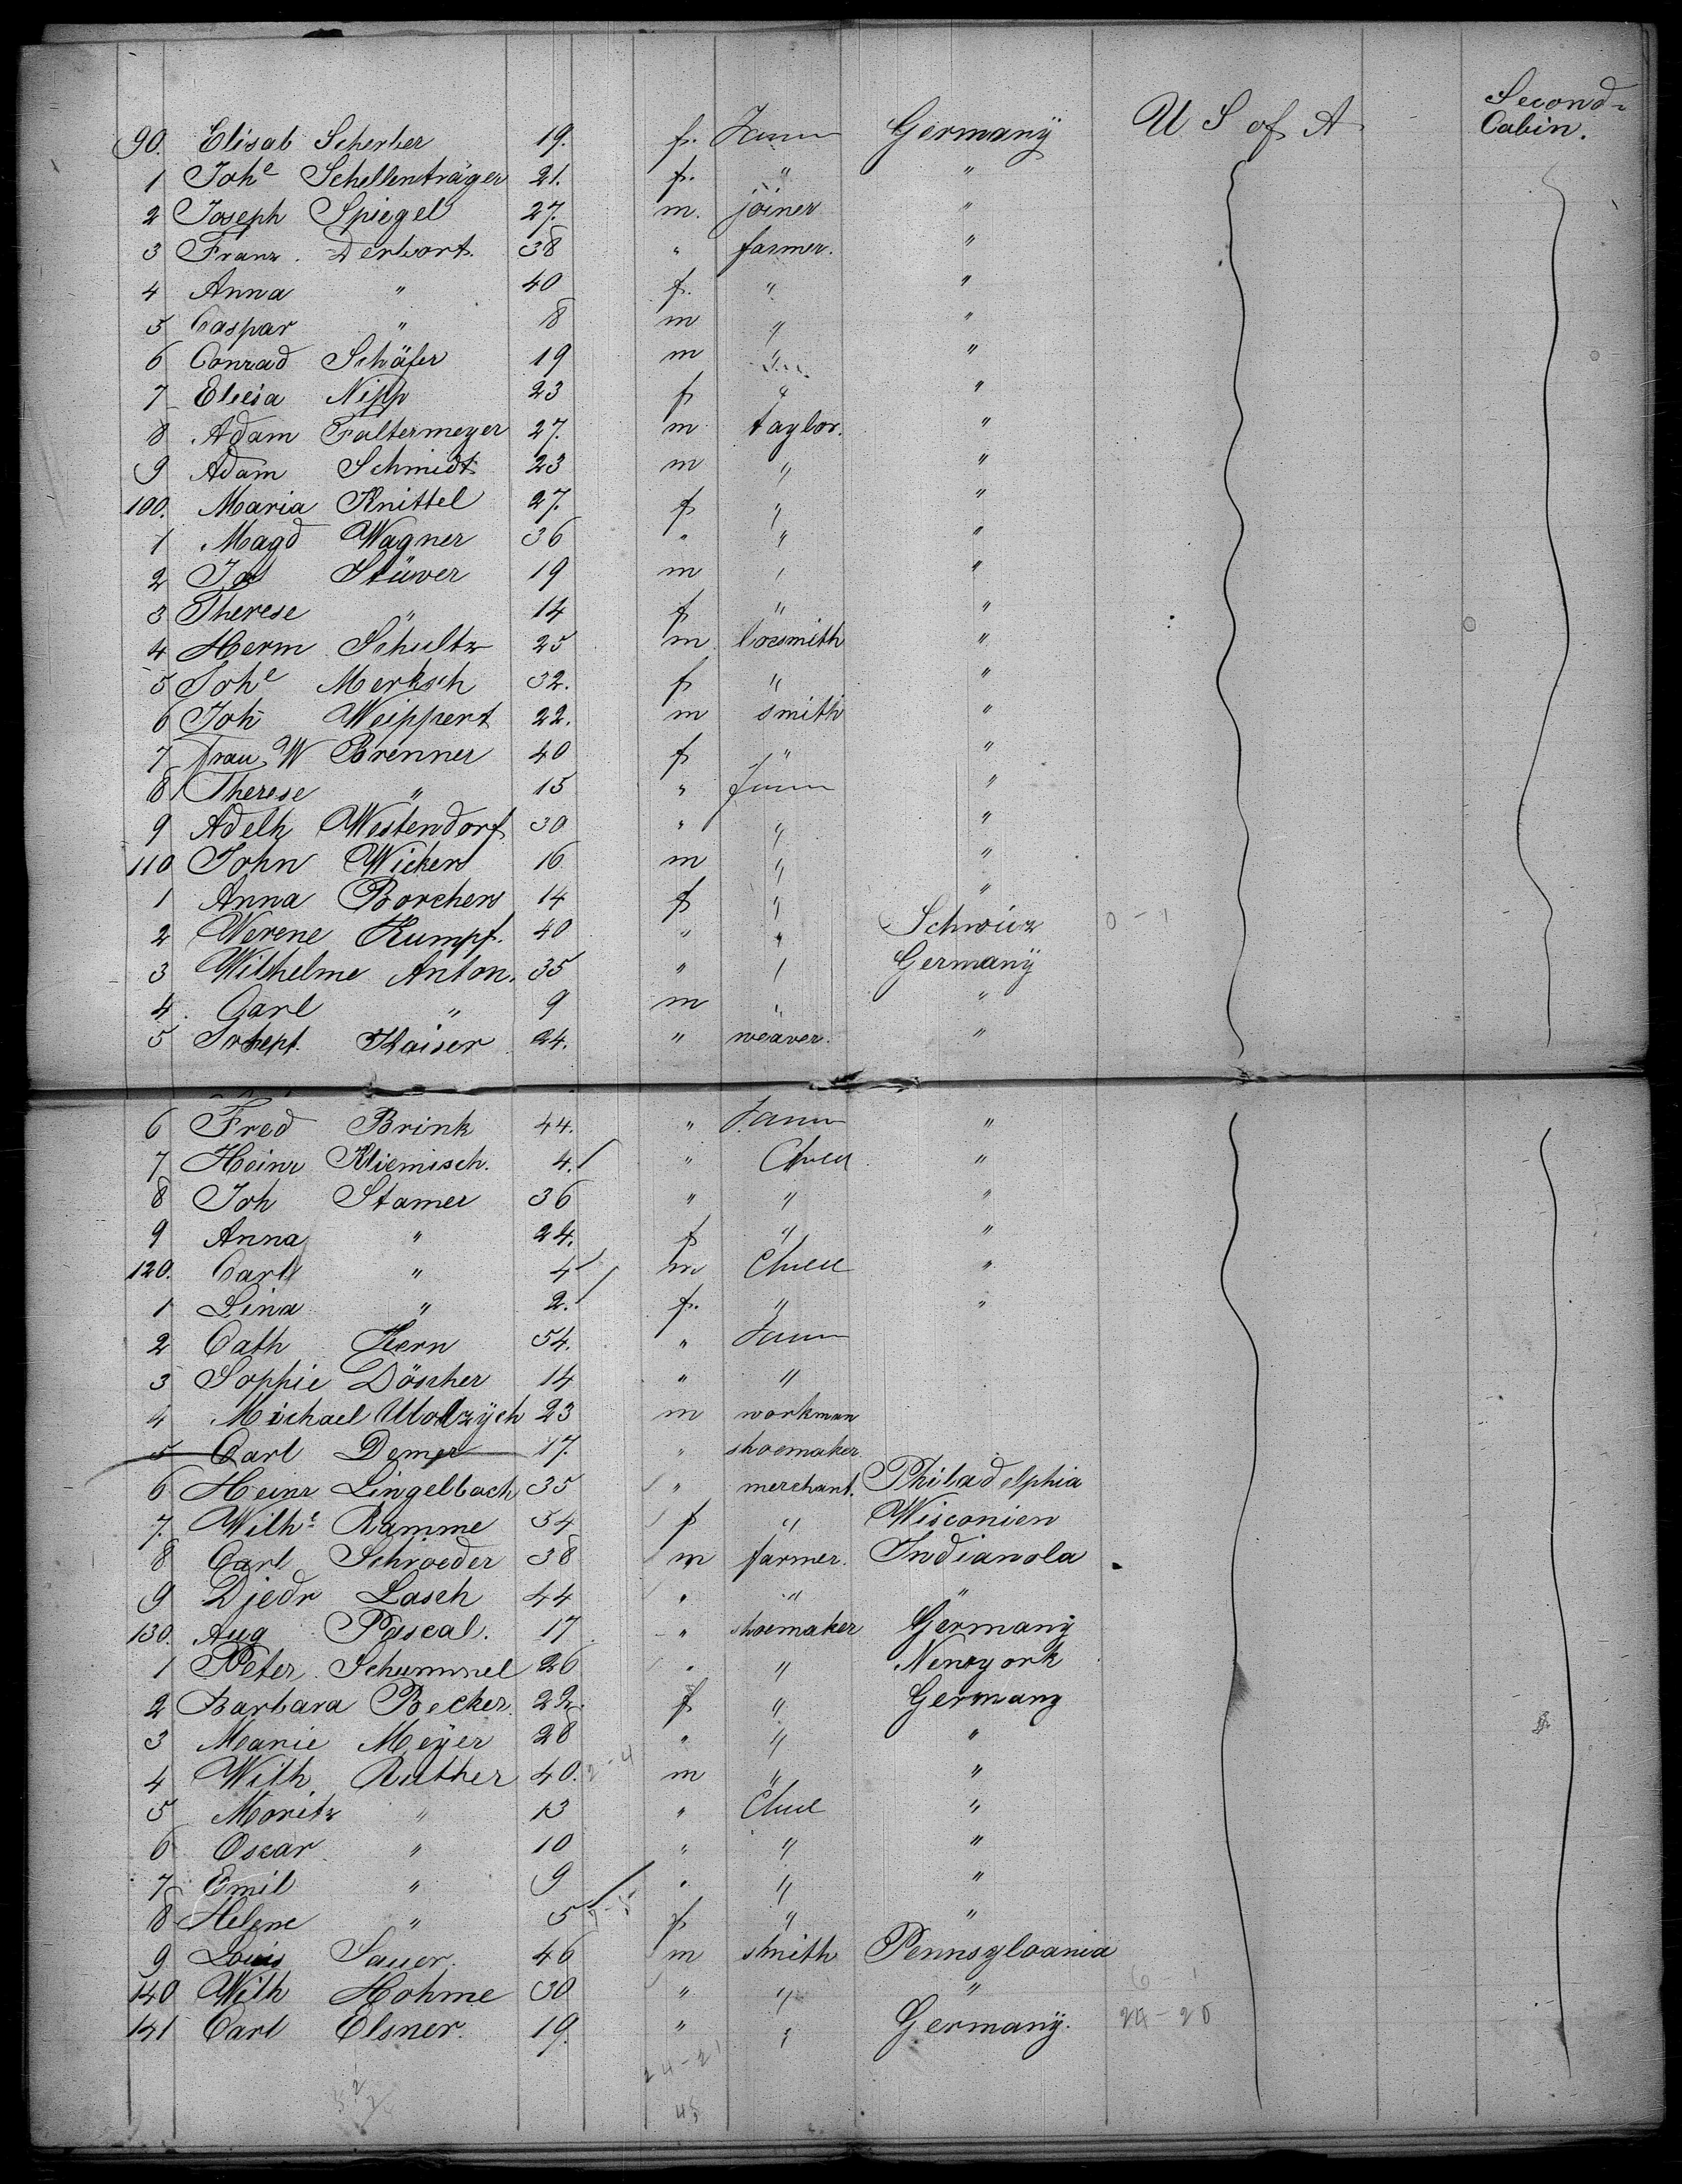 Second-
Cabin.
90. Elisab Scherber 19. f. Germany U S of A
1 Joh^e Schellenträger 21. f. " "
2 Joseph Spiegel 27. m. joiner "
3 Franz. Derwort. 38 " farmer. "
4 Anna " 40 f. " "
5 Caspar " 8 m " "
6 Conrad Schäfer 19 m " "
7 Nipp 23 f " "
8 Adam Faltermeyer 27. m taylor. "
9 Adam Schmidt 23 m " "
100. Maria Knittel 27. f " "
1 Magd Wagner 36 " " "
2 Stüwer 19 m " "
3 Therese " 14 f " "
4 Herm Schultz 25 m locsmith "
5 Joh^e Merksch 32. f " "
6 Joh Weippert 22. m smith "
7 Frau W Brenner 40 f " "
8 Therese " 15 " "
9 Adelh Westendorf 30 " " "
110 John Wickers 16 m " "
1 Anna Borchers 14 f " "
2 Werene Kumpf. 40 " " Schweiz 0-1
3 Wilhelme Anton. 35 " " Germany
4. Carl " 9 m " "
5 Kaiser 24. " weaver. "
6 Fred Brink 44. " "
7 Heinr Kliemisch. 4. " "
8 Joh Stamer 36 " " "
9 Anna " 24. f " "
120. Carl " 4 m "
1 Lina " 2. f. " "
2 Cath Kern 54. "
3 Sophie Döscher 14 " "
4 Michael 23 m workman
5 Carl Demer 17. " shoemaker
6 Heinr Lingelbach 35 " merchant. Philadelphia
7. Wilh^e Ramme 34 f " Wisconien
8 Carl Schroeder 38 m farmer. Indianola
9 Djedr Lasch 44 " " "
130. Aug Pascal. 17 " shoemaker Germany
1 Peter Schummel 26 " " Newyork
2 Barbara Becker. 22. f " Germany
3 Marie Meyer 28 " " "
4 Wilh Ruther 40. m " "
5 Moritz " 13 " "
6 Oscar " 10 " " "
7 Emil " 9 " " "
8 Helene " 5 f " "
9 Louis Sauer. 46 m smith Pennsylvania
140 Wilh Hohme 30 " " " 6-1
141 Carl Elsner. 19. " " Germany.
24-21
45